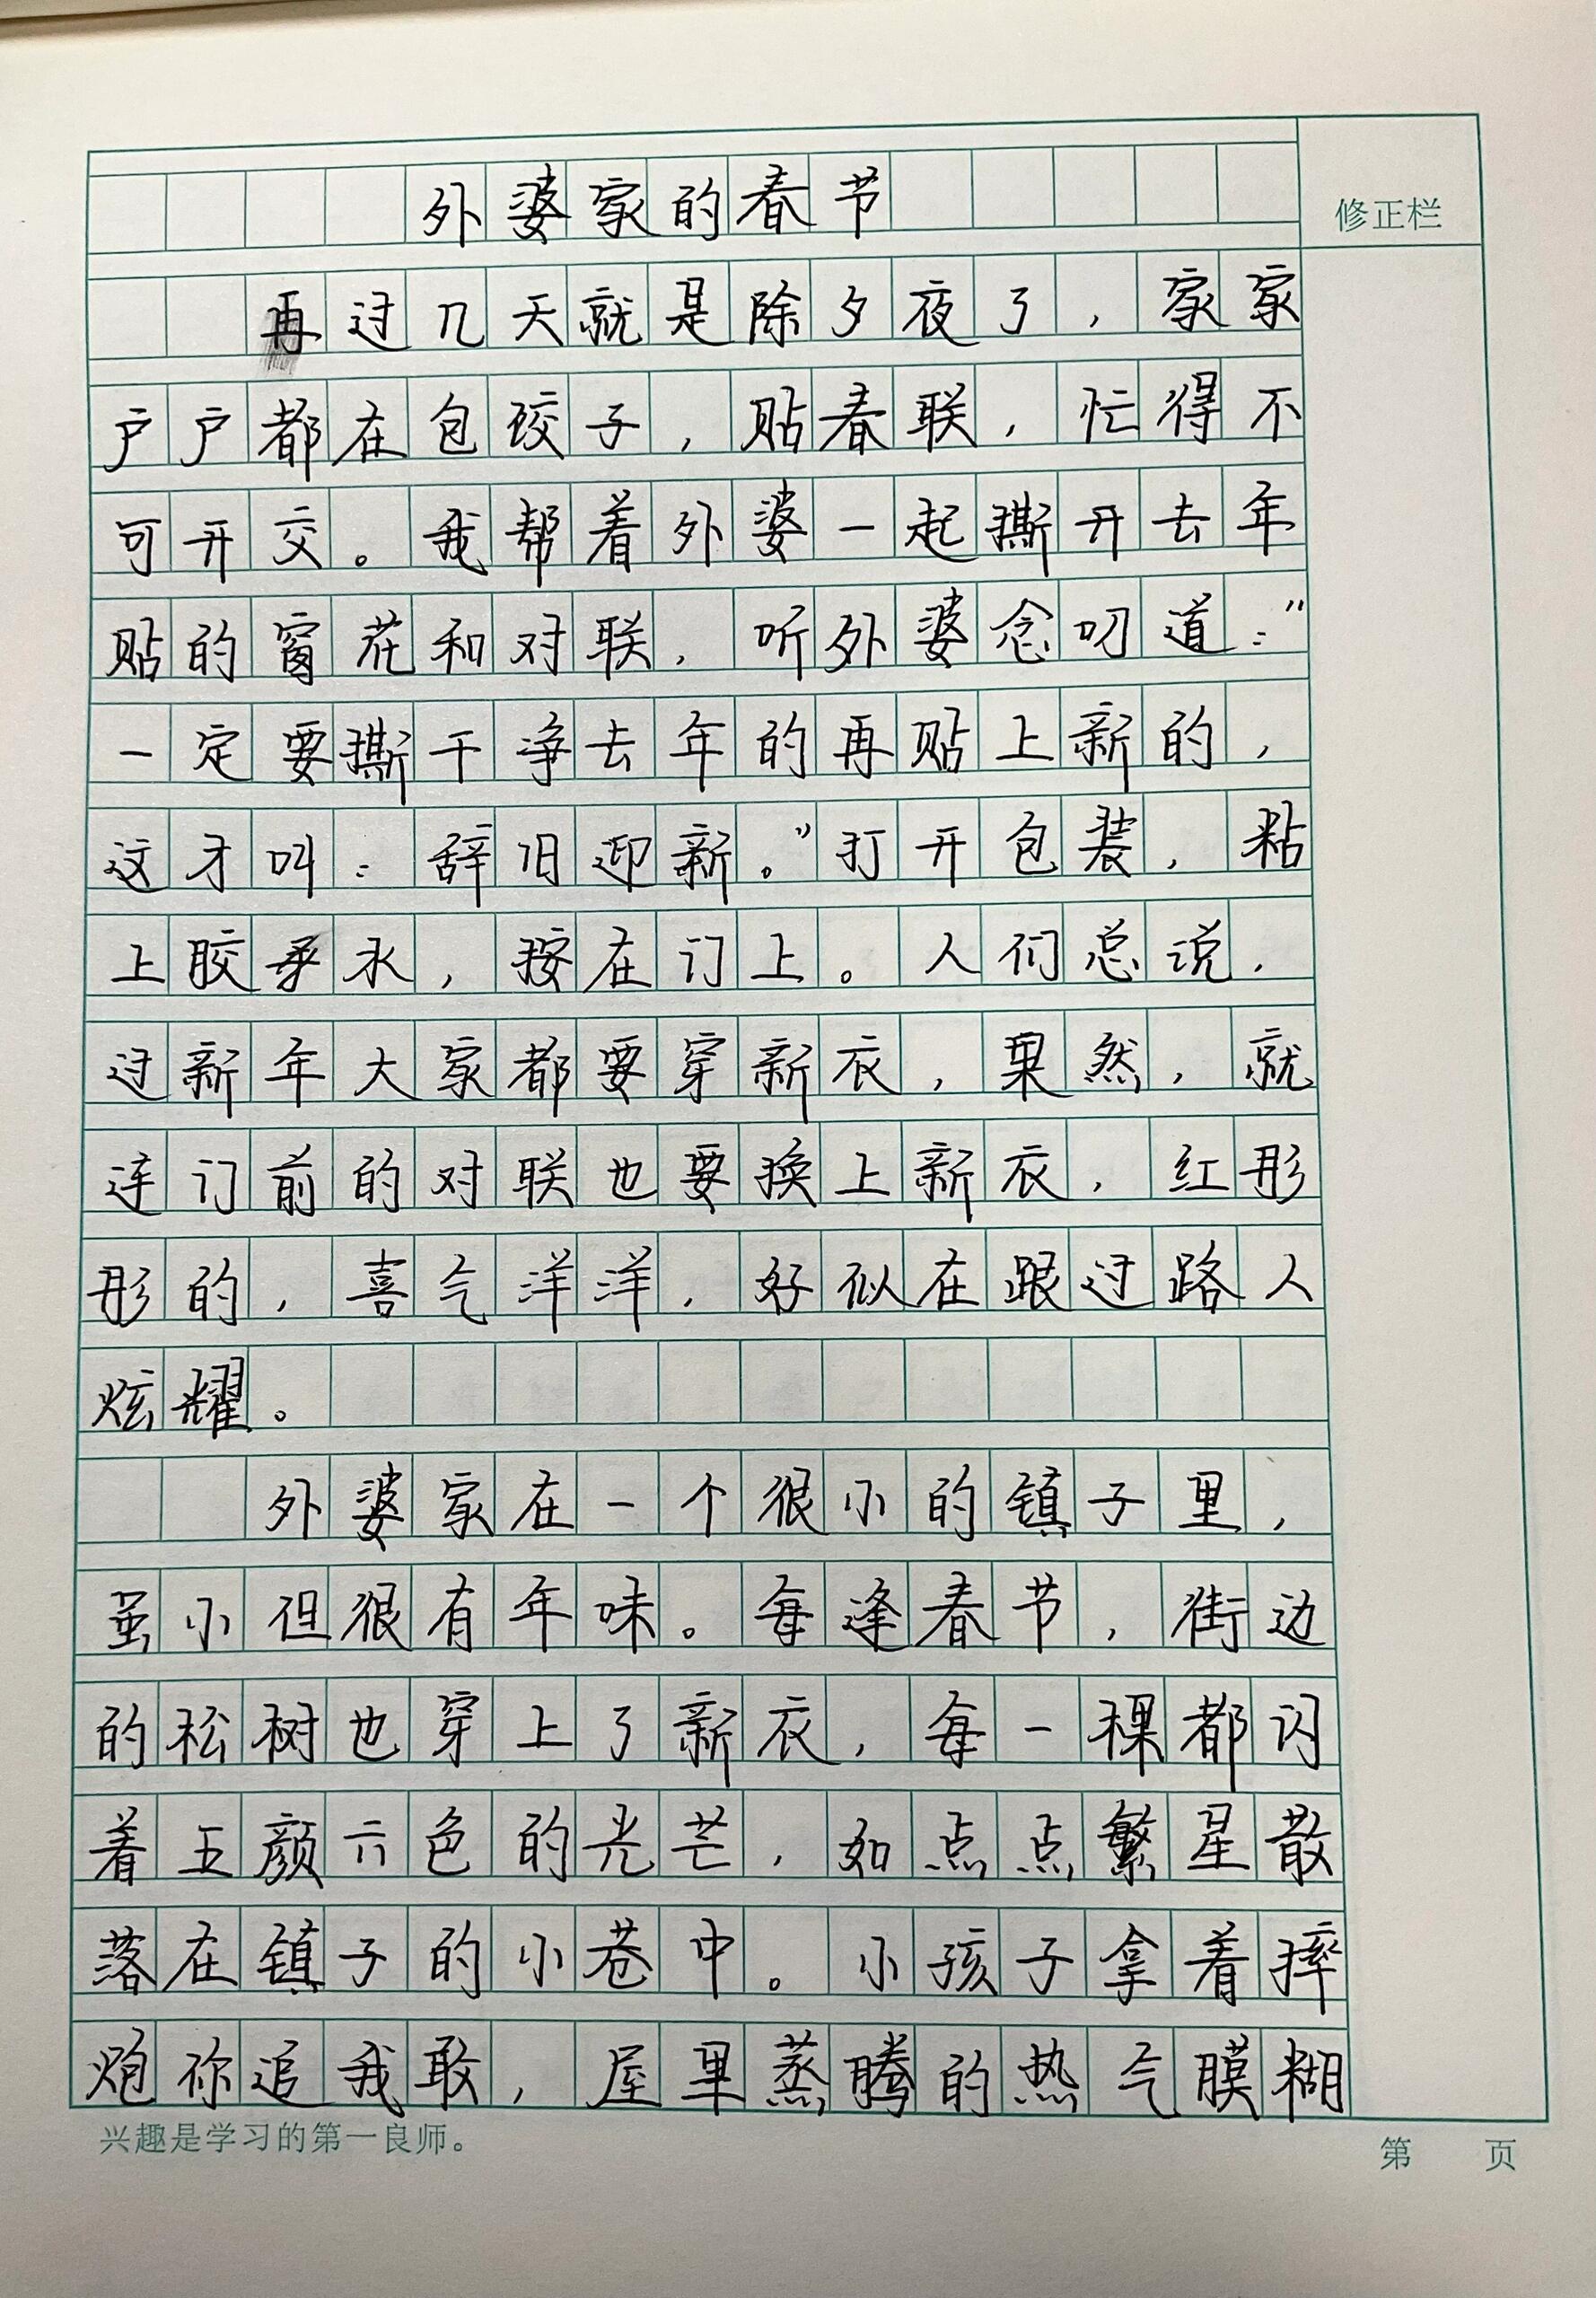 外婆家的春节
修正栏
再过几天就是除夕夜了，家家
户户都在包饺子，贴春联，忙得不
可开交。我帮着外婆一起撕开去年
贴的窗花和对联，听外婆念叨道："
一定要撕干净去年的再贴上新的，
这才叫：辞旧迎新。"打开包装，粘
上胶水，按在门上。人们总说，
过新年大家都要穿新衣，果然，就
连门前的对联也要换上新衣，红彤
彤的，喜气洋洋，好似在跟过路人
炫耀。
外婆家在一个很小的镇子里，
虽小但很有年味。每逢春节，街边
的松树也穿上了新衣，每一棵都闪
着五颜六色的光芒，如点点繁星散
落在镇子的小巷中。小孩子拿着摔
炮你追我敢，屋里蒸腾的热气膜糊
兴趣是学习的第一良师。
第 页